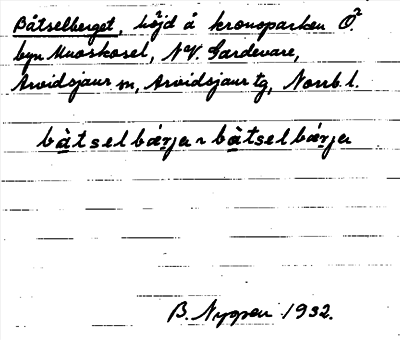 Båtselberget, höjd å kronoparken O².
byn Muoskosel, NV. Gardevare,
Arvidsjaur sn, Arvidsjaur tg, Norrb. l.
bàtselbárja ~ bàtselbárja
B. Nygren 1932.